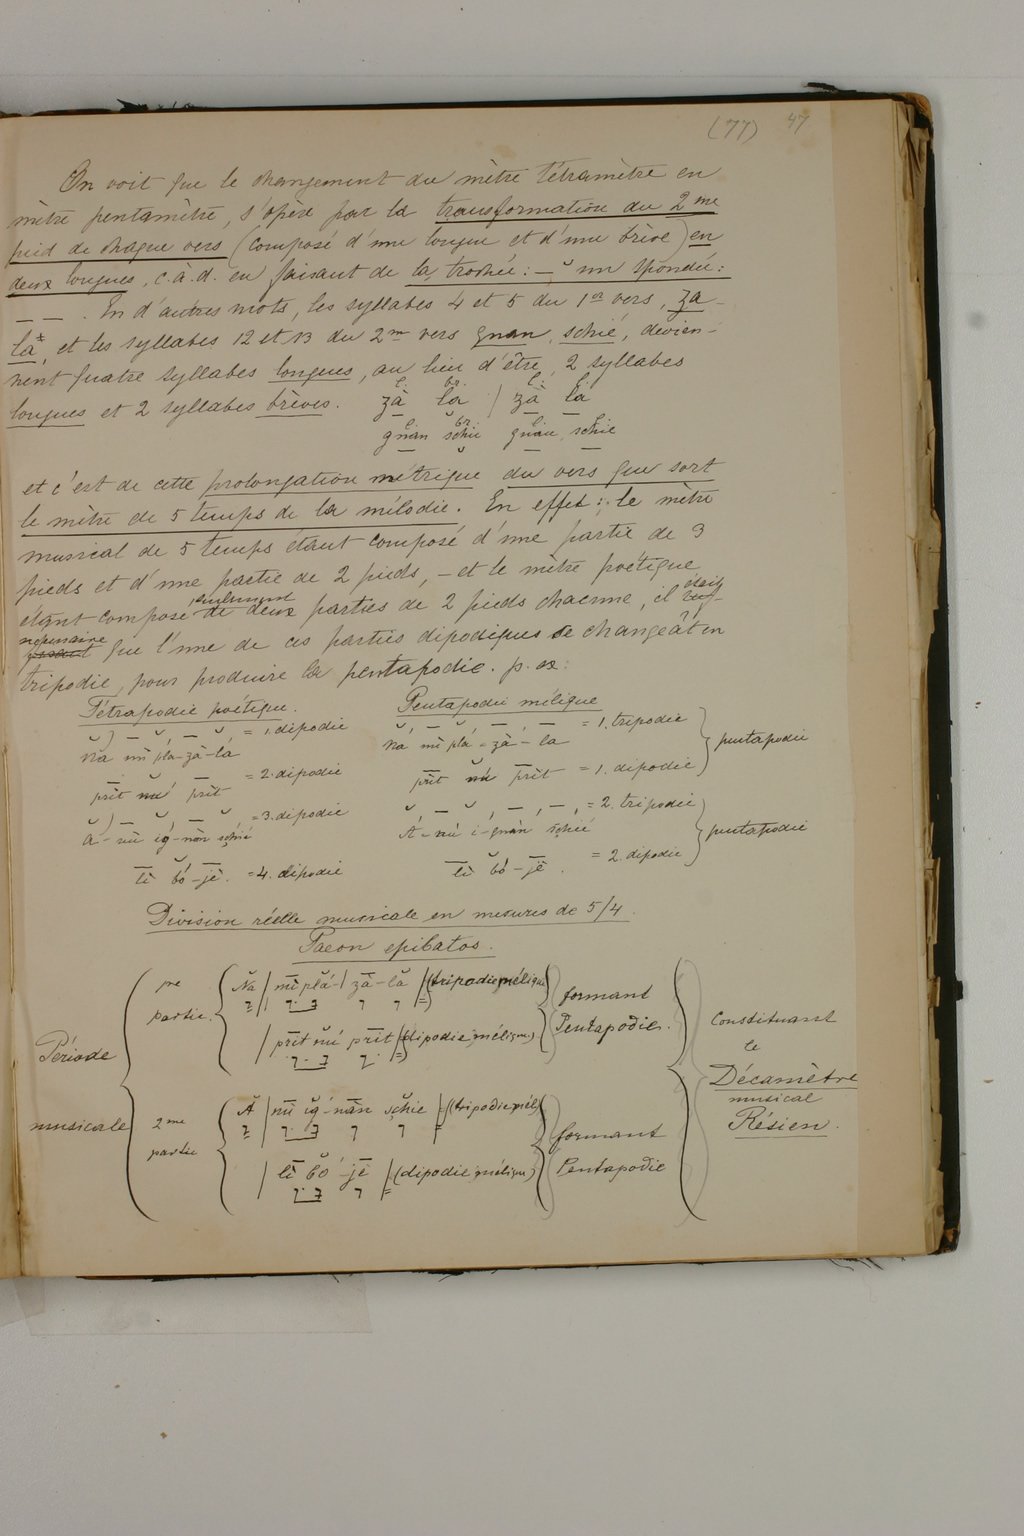 (77) 47
On voit que le changement du mètre tétramètre en
mètre pentamètre, s'opère par la transformation du 2me
pied de chaque vers (composé d'une longue et d'une brève) en
deux longues, c.à.d. en faisant de la trochée: – ˘ un spondée:
– – . En d'autres mots, les syllabes 4 et 5 du 1er vers, za-
la*, et les syllabes 12 et 13 du 2m vers gnan, schié, devien-
nent quatre syllabes longues, au lieu d'être, 2 syllabes
longues et 2 syllabes brèves. zà la / zà la
gnan schie gnan schie
et c'est de cette prolongation métrique du vers que sort
le mètre de 5 temps de la mélodie. En effet: le mètre
musical de 5 temps étant composé d'une partie de 3
pieds et d'une partie de 2 pieds, – et le mètre poétique
étant composé seulement de deux parties de 2 pieds chacune, il était
nécessaire que l'une de ces parties dipodiques se changeât en
tripodie, pour produire la pentapodie. p. ex:
Tétrapodie poétique. Pentapodie mélique
˘ ) – ˘, – ˘, = 1. dipodie ˘, – ˘ –, – = 1. tripodie
Na mi pla-zà-la Na mi pla-zà-la pentapodie
prit nu prit = 2. dipodie prit nu prit = 1. dipodie
˘ ) – ˘, – ˘ = 3. dipodie ˘ – ˘, –, –, = 2. tripodie
A-nu ig-nan schié A-nu i-gnan schié pentapodie
li bó-jè. = 4. dipodie li bó-jè. = 2. dipodie
Division réelle musicale en mesures de 5/4.
Paeon epibatos.
1re partie. Na | mi pla- | zà-la | (tripodie mélique) formant
| prit nu prit | (dipodie mélique) Pentapodie.
Période musicale
constituant le Décamètre musical Résien.
2me partie A | nu ig-nan schie | (tripodie mél.) formant
| li bó-jè | (dipodie mélique) Pentapodie